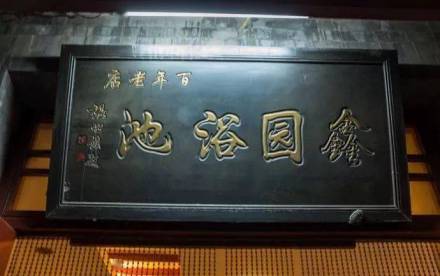 百年老店
鑫园浴池